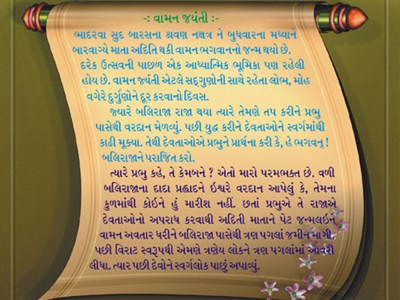 -: વામન જયંતી :-
ભાદરવા સુદ બારસના શ્રવણ નક્ષત્ર ને બુધવારના મધ્યાને
બારવાગ્યે માતા અદિતિ થકી વામન ભગવાનનો જન્મ થયો છે.
દરેક ઉત્સવની પાછળ એક આધ્યાત્મિક ભૂમિકા પણ રહેલી
હોય છે. વામન જ્યંતી એટલે સદ્‌ગુણોની સાથે રહેતા લોભ, મોહ
વગેરે દુર્ગુણોને દૂર કરવાનો દિવસ.
જ્યારે બલિરાજા રાજા થયા ત્યારે તેમણે તપ કરીને પ્રભુ
પાસેથી વરદાન મેળવ્યું. પછી યુદ્ધ કરીને દેવતાઓને સ્વર્ગમાંથી
કાઢી મૂક્યા. તેથી દેવતાઓએ પ્રભુને પ્રાર્થના કરી કે, હે ભગવન્ !
બલિરાજાને પરાજિત કરો.
ત્યારે પ્રભુ કહે, તે કેમબને ? એતો મારો પરમભક્ત છે. વળી
બલિરાજાના દાદા પ્રહ્લાદને ઇશ્વરે વરદાન આપેલું કે, તેમના
કુળમાંથી કોઇને હું મારીશ નહીં. છતાં પ્રભુએ તે રાજાએ
દેવતાઓનો અપરાધ કરવાથી અદિતી માતાને પેટ જન્મલઇને
વામન અવતાર ધરીને બલિરાજા પાસેથી ત્રણ પગલાં જમીન માગી.
પછી વિરાટ સ્વરૂપથી એમણે ત્રણેય લોકને ત્રણ પગલાંમાં આવરી
લીધા. ત્યાર પછી દેવોને સ્વર્ગલોક પાછું અપાવ્યું.